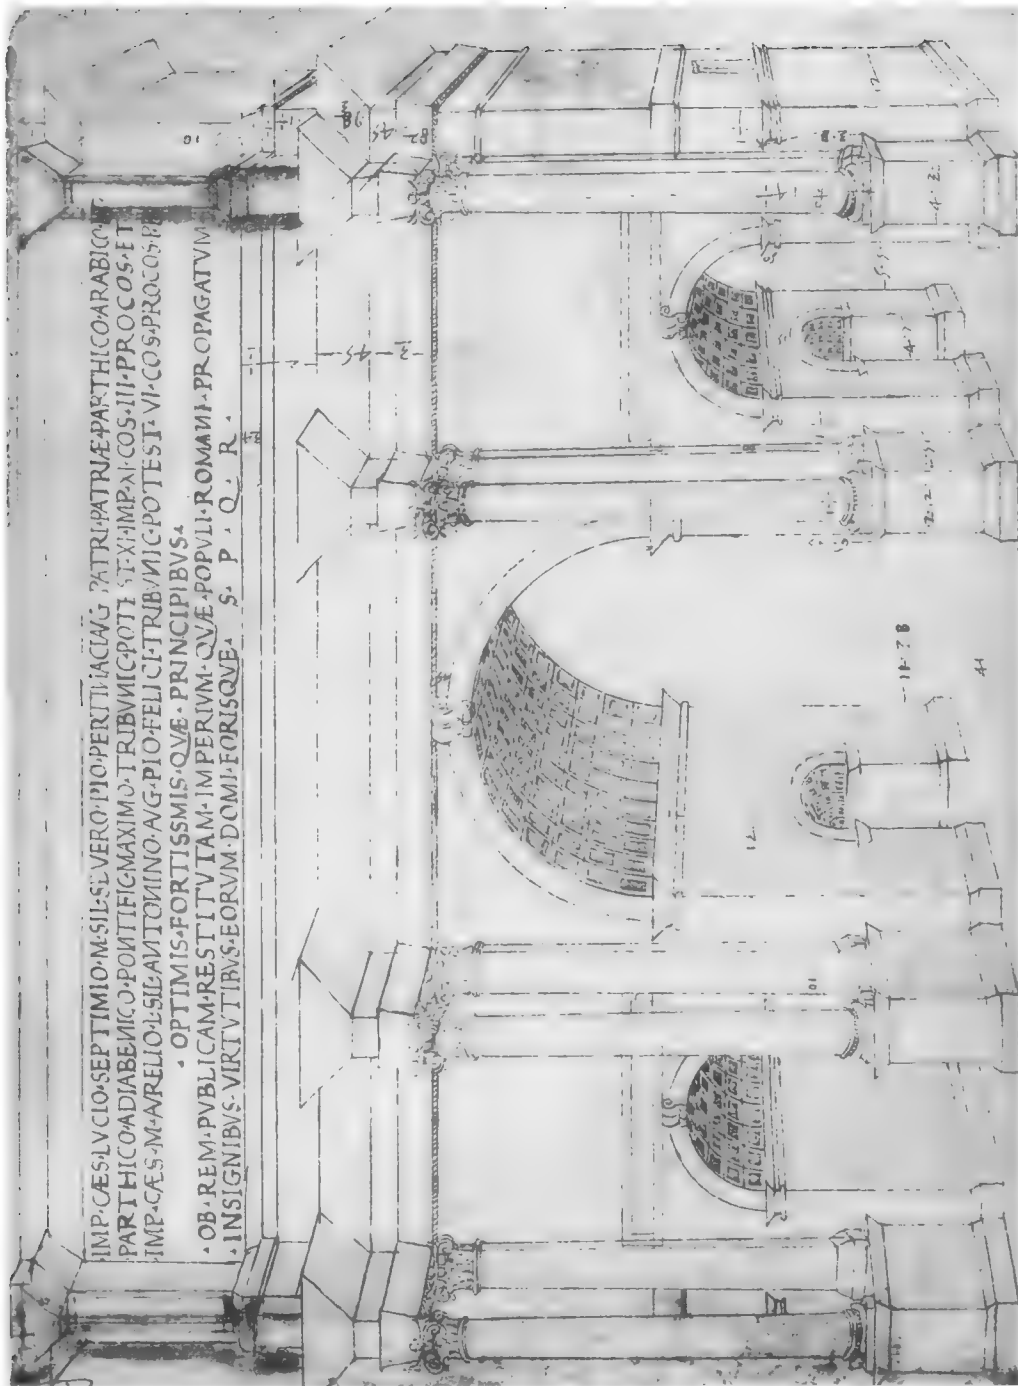 IMP·CÆS·LVCIO·SEPTIMIO·M·SIL·SEVERO·PIO·PERTINACI·AVG PATRI·PATRIÆ·PARTHICO·ARABICO·
PARTHICO·ADIABENICO·PONTIFIC·MAXIMO·TRIBVNIC·POTEST·XI·IMP·XI·COS·III·PROCOS·ET
IMP·CÆS·M·AVRELIO·L·SIL·ANTONINO·AVG·PIO·FELICI·TRIBVNIC·POTEST·VI·COS·PROCOS·P
·OPTIMIS·FORTISSMIS·QVÆ·PRINCIPIBVS·
·OB·REM·PVBLICAM·RESTITVTAM·IMPERIVM·QVÆ·POPVLI·ROMANI·PROPAGATVM
·INSIGNIBVS·VIRTVTIBVS·EORVM·DOMI·FORISQVE· S· P· Q· R·
10
12
41